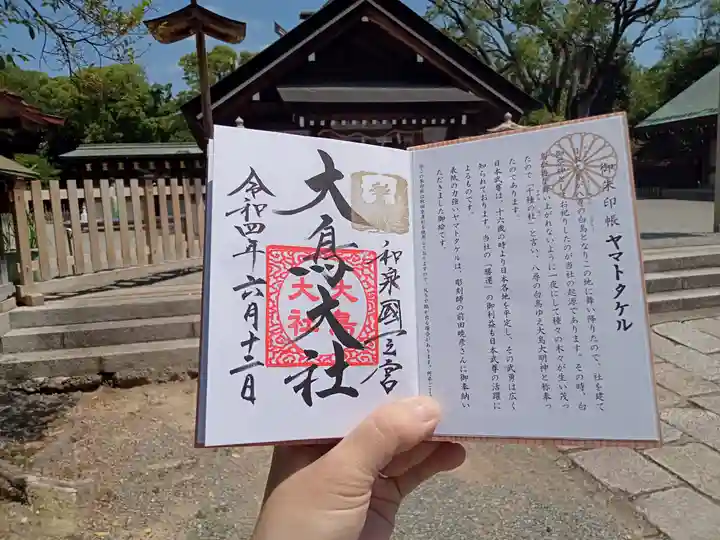 御朱印帳 ヤマトタケル
八尋の白鳥となりこの地に舞い降りたので、社を建て
お祀りしたのが当社の起源であります。その時、白
鳥が
いよう
がれないように一夜にして種々の木々が生い茂っ
たので「千種の杜」と言い、八尋の白鳥ゆえ大鳥大明神と称奉っ
たのであります。
日本武尊は、十六歳の時より日本各地を平定し、その武勇は広く
知られております。当社の「勝運」の御利益も日本武尊の活躍に
よるものです。
表紙の力強いヤマトタケルは、彫刻師の前田暁彦さんに御奉納い
ただきました御絵です。
和泉國一之宮
大鳥大社
大鳥
大社
令和四年六月十二日